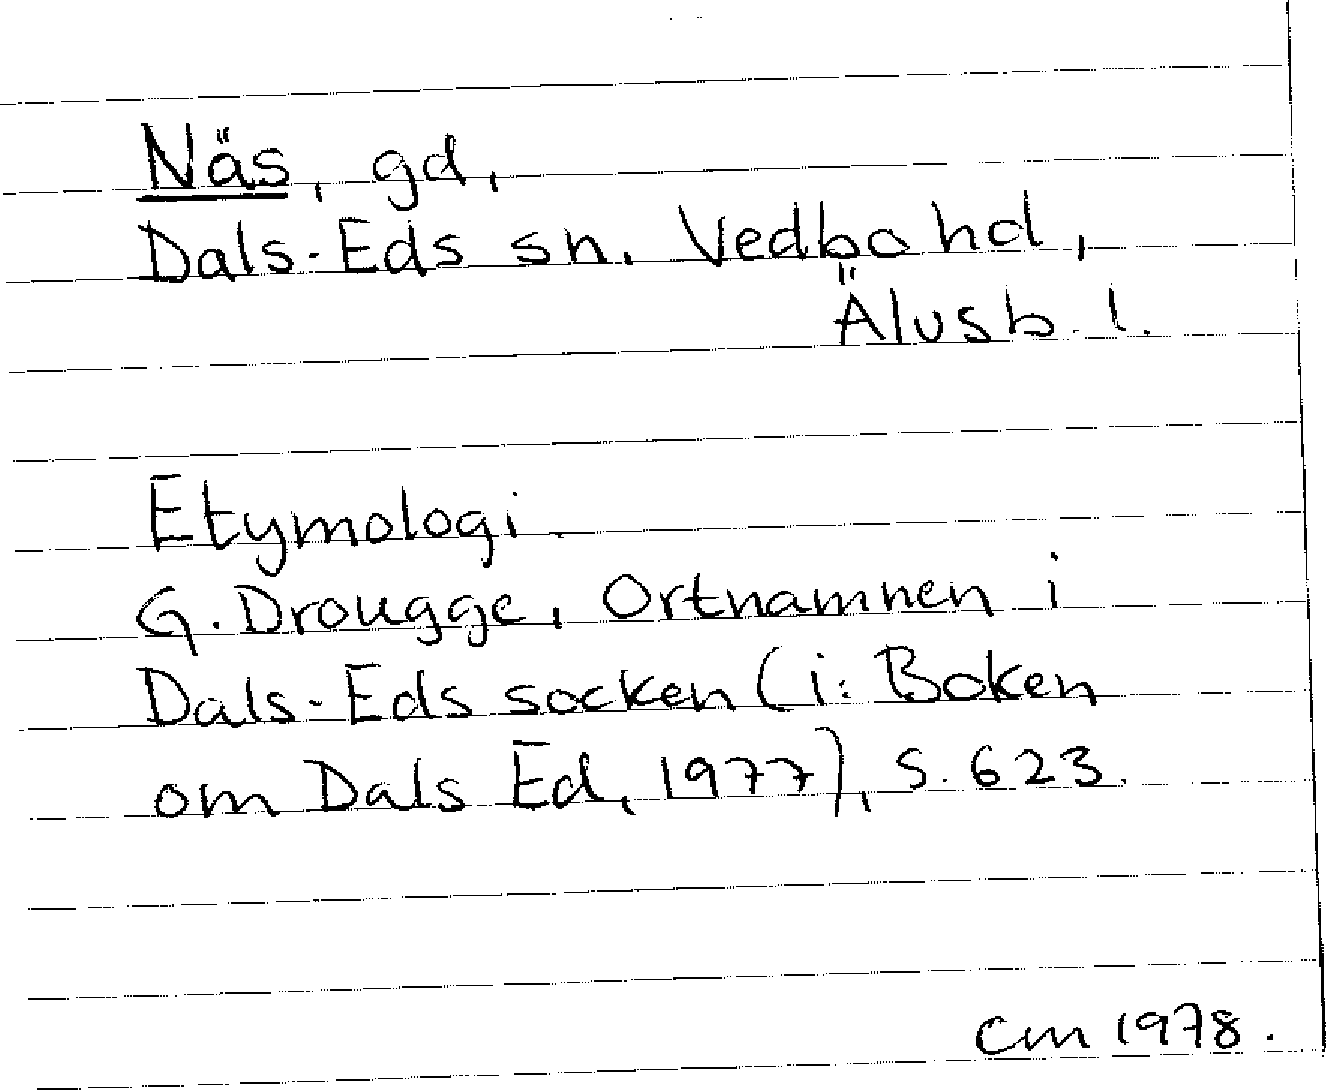 Näs, gd,
Dals-Eds sn. Vedbo hd,
Älvsb. l.
Etymologi
G. Drougge, Ortnamnen i
Dals-Eds socken (i: Boken
om Dals Ed, 1977), s. 623.
Cm 1978.